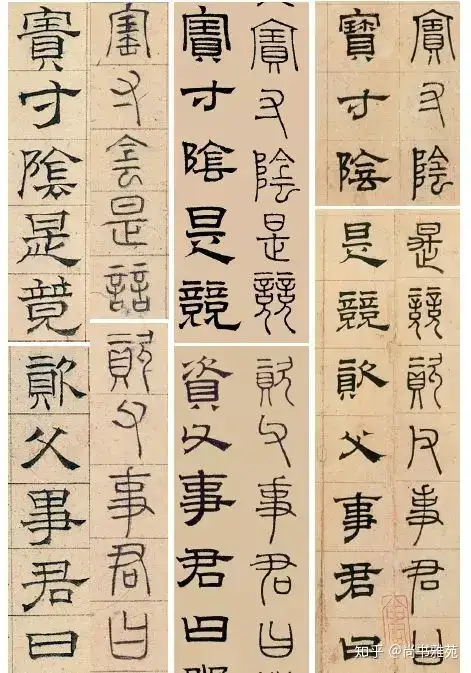 寶寸陰
寶寸陰
是競資父事君曰
是競資父事君曰
寶寸陰是競
寶寸陰是競
資父事君曰
資父事君曰
寶寸陰是競
寶寸陰是競
資父事君曰
資父事君曰
知乎 @尚书雅苑